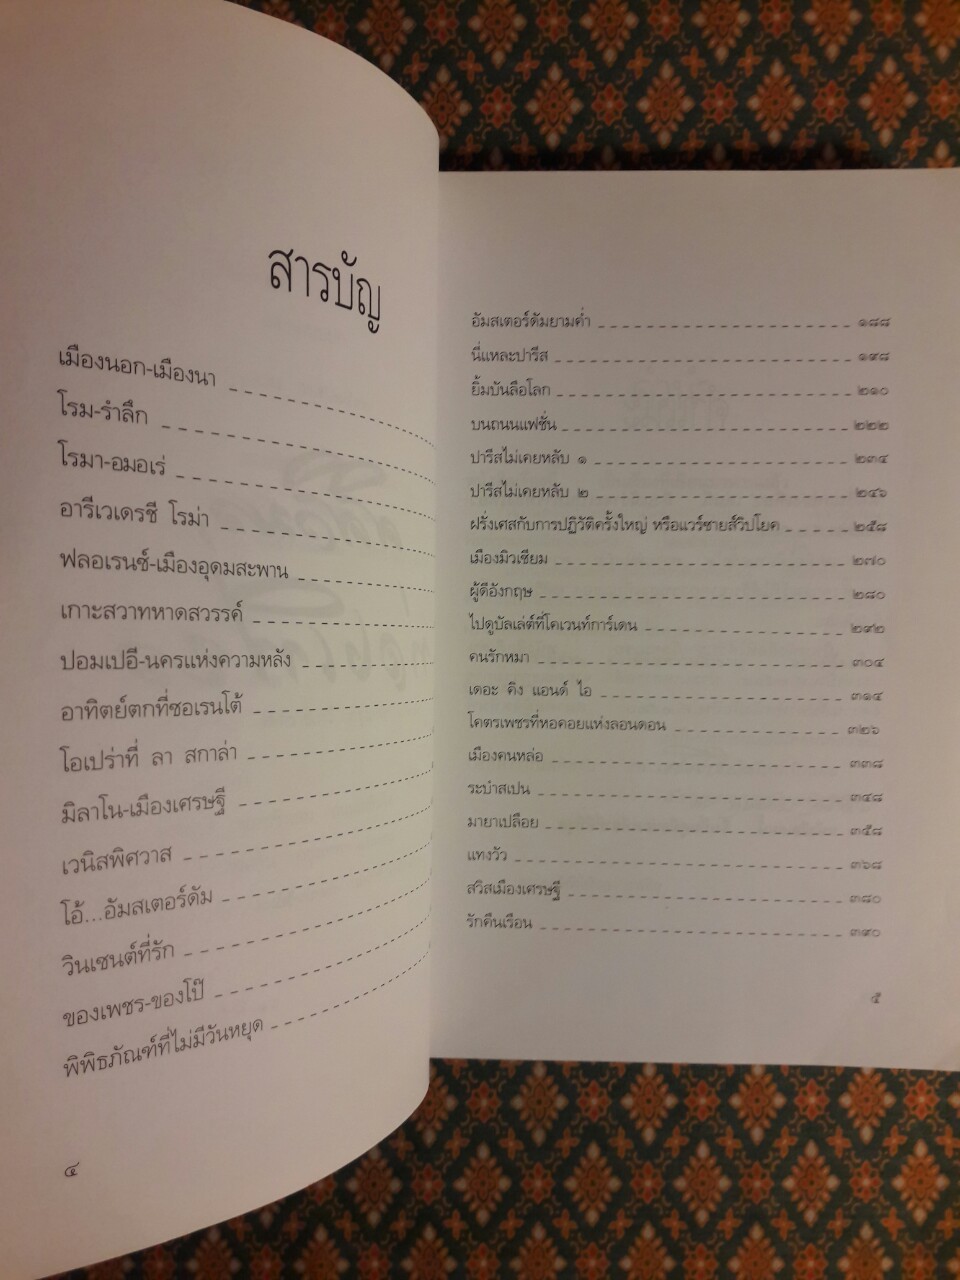 สารบัญ
เมืองนอก-เมืองนา
โรม-รำลึก
โรมา-อมอเร่
อารีเวเดรชี โรม่า
ฟลอเรนซ์-เมืองอุดมสะพาน
เกาะสวาทหาดสวรรค์
ปอมเปอี-นครแห่งความหลัง
อาทิตย์ตกที่ซอเรนโต้
โอเปร่าที่ ลา สกาล่า
มิลาโน-เมืองเศรษฐี
เวนิสพิศวาส
โอ้...อัมสเตอร์ดัม
วินเซนต์ที่รัก
ของเพชร-ของโป๊
พิพิธภัณฑ์ที่ไม่มีวันหยุด
๔
อัมสเตอร์ดัมยามค่ำ ๑๘๘
นี่แหละปารีส ๑๙๘
ยิ้มบันลือโลก ๒๑๐
บนถนนแฟชั่น ๒๒๒
ปารีสไม่เคยหลับ ๑ ๒๓๔
ปารีสไม่เคยหลับ ๒ ๒๔๖
ฝรั่งเศสกับการปฏิวัติครั้งใหญ่ หรือแวร์ซายส์วิปโยค ๒๕๘
เมืองมิวเซียม ๒๗๐
ผู้ดีอังกฤษ ๒๘๐
ไปดูบัลเล่ต์ที่โคเวนท์การ์เดน ๒๙๒
คนรักหมา ๓๐๔
เดอะ คิง แอนด์ ไอ ๓๑๔
โคตรเพชรที่หอคอยแห่งลอนดอน ๓๒๖
เมืองคนหล่อ ๓๓๘
ระบำสเปน ๓๔๘
มายาเปลือย ๓๕๘
แทงวัว ๓๖๘
สวิสเมืองเศรษฐี ๓๘๐
รักคืนเรือน ๓๙๐
๕